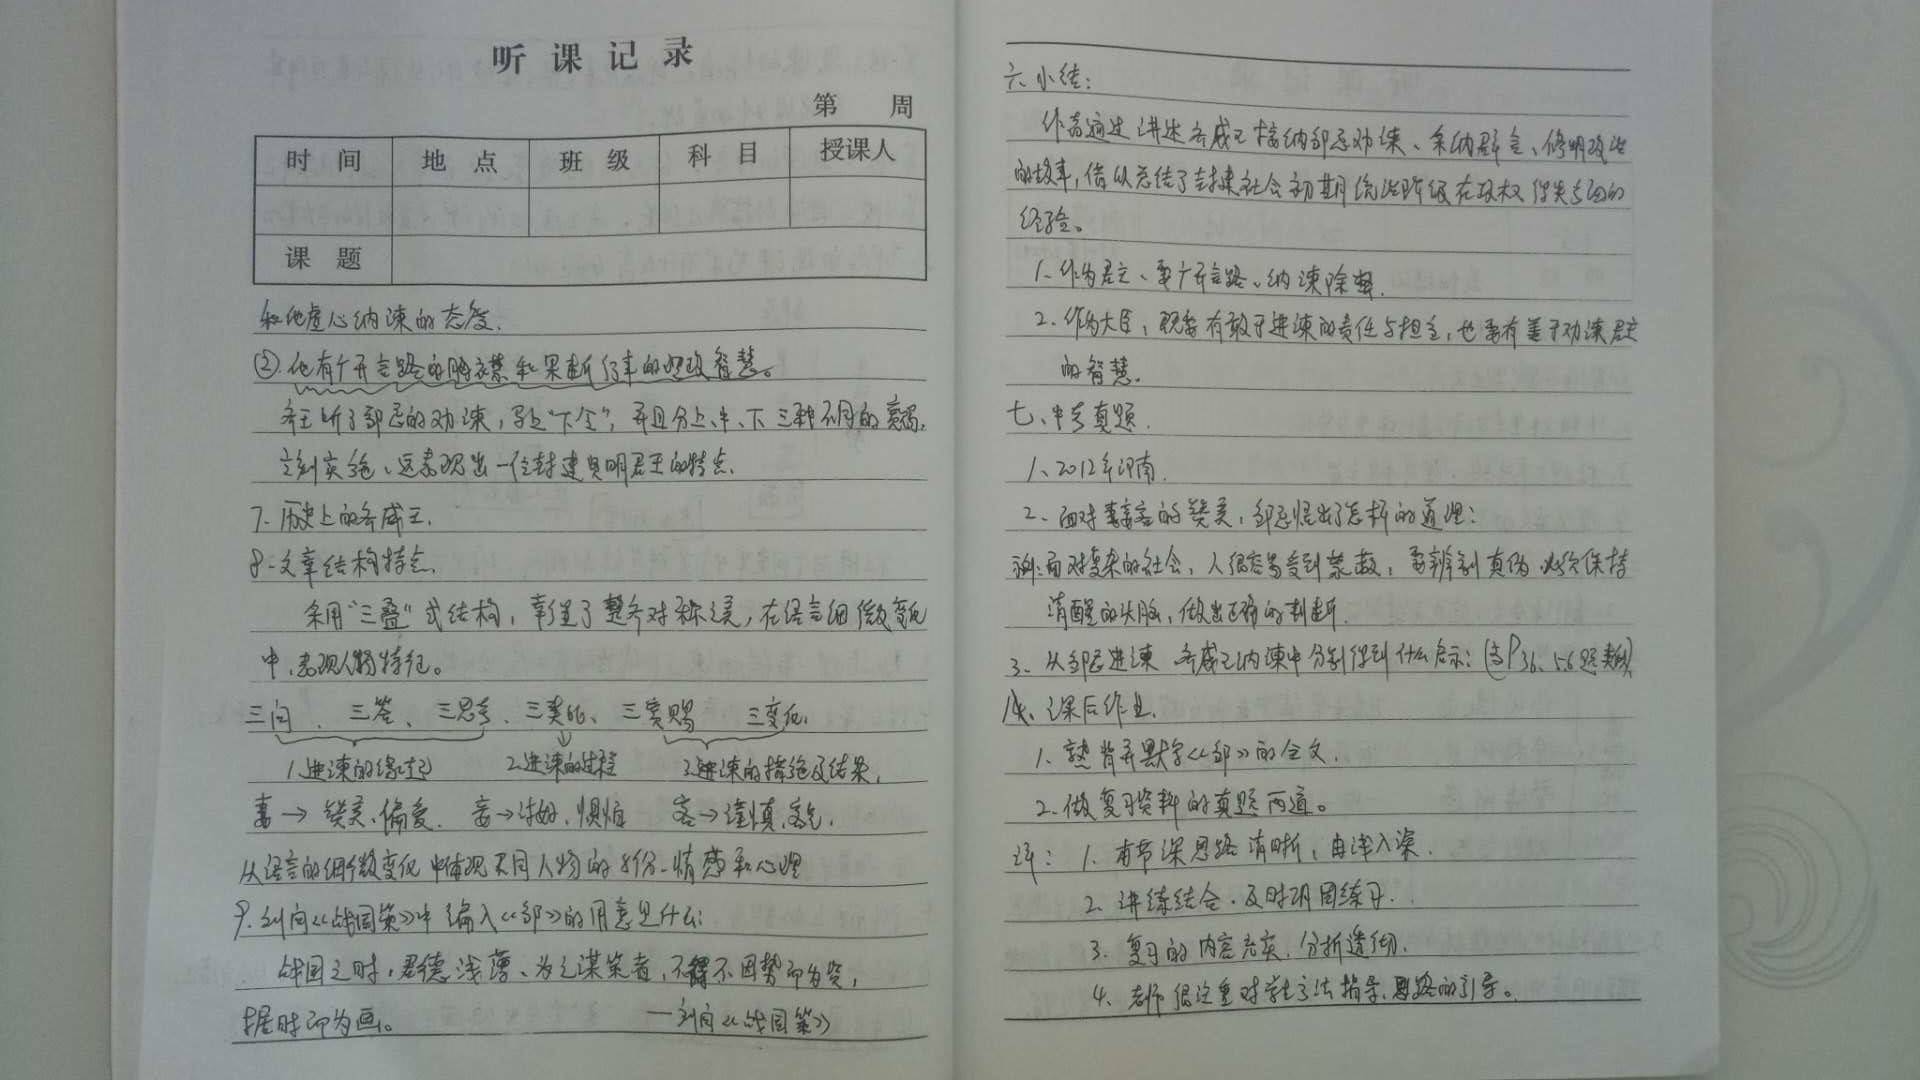 听课记录
第 周
时间 地点 班级 科目 授课人
课题
和他虚心纳谏的态度.
②.他有广开言路的胸襟和果断行事的理政智慧。
齐王听了邹忌的劝谏,马上“下令”,并且分上、中、下三种不同的赏赐,
立刻实施、这表现出一位封建贤明君王的特点.
7.历史上的齐威王.
8.文章结构特点.
采用“三叠”式结构,幸堂了整齐对称之美,在语言细微变化
中,表现人物特征。
三问、三答、三思考、三类比、三赏赐 三变化.
1.进谏的缘起 2.进谏的过程 3.进谏的措施及结果,
妻→赞美、偏爱. 妾→讨好、惧怕 客→谨慎、客气.
从语言的细微变化中体现不同人物的身份、情感和心理
9.刘向《战国策》中编入《邹》的用意是什么:
战国之时,君德浅薄、为之谋策者,不得不因势而为资,
据时而为画。 —刘向《战国策》
六、小结:
作者通过讲述齐威王接纳邹忌劝谏、采纳群言、修明政治
的故事,借以总结了封建社会初期统治阶级在政权得失方面的
经验。
1.作为君主、要广开言路、纳谏除弊.
2.作为大臣,既要有敢于进谏的责任与担当,也要有善于劝谏君主
的智慧。
七、中考真题.
1、2012年河南.
2、面对妻妾客的赞美,邹忌悟出了怎样的道理:
示例:面对复杂的社会,人很容易受到蒙蔽,要辨别真伪必须保持
清醒的头脑,做出正确的判断.
3.从邹忌进谏 齐威王纳谏中分别得到什么启示:(与P36、5.6题类似)
八、课后作业.
1.熟背并默写《邹》的全文.
2.做复习资料的真题两道。
评:1.本节课思路清晰,由浅入深.
2.讲练结合.及时巩固练习.
3.复习的内容充实,分析透彻.
4.老师很注重对学生方法指导、思路的引导。